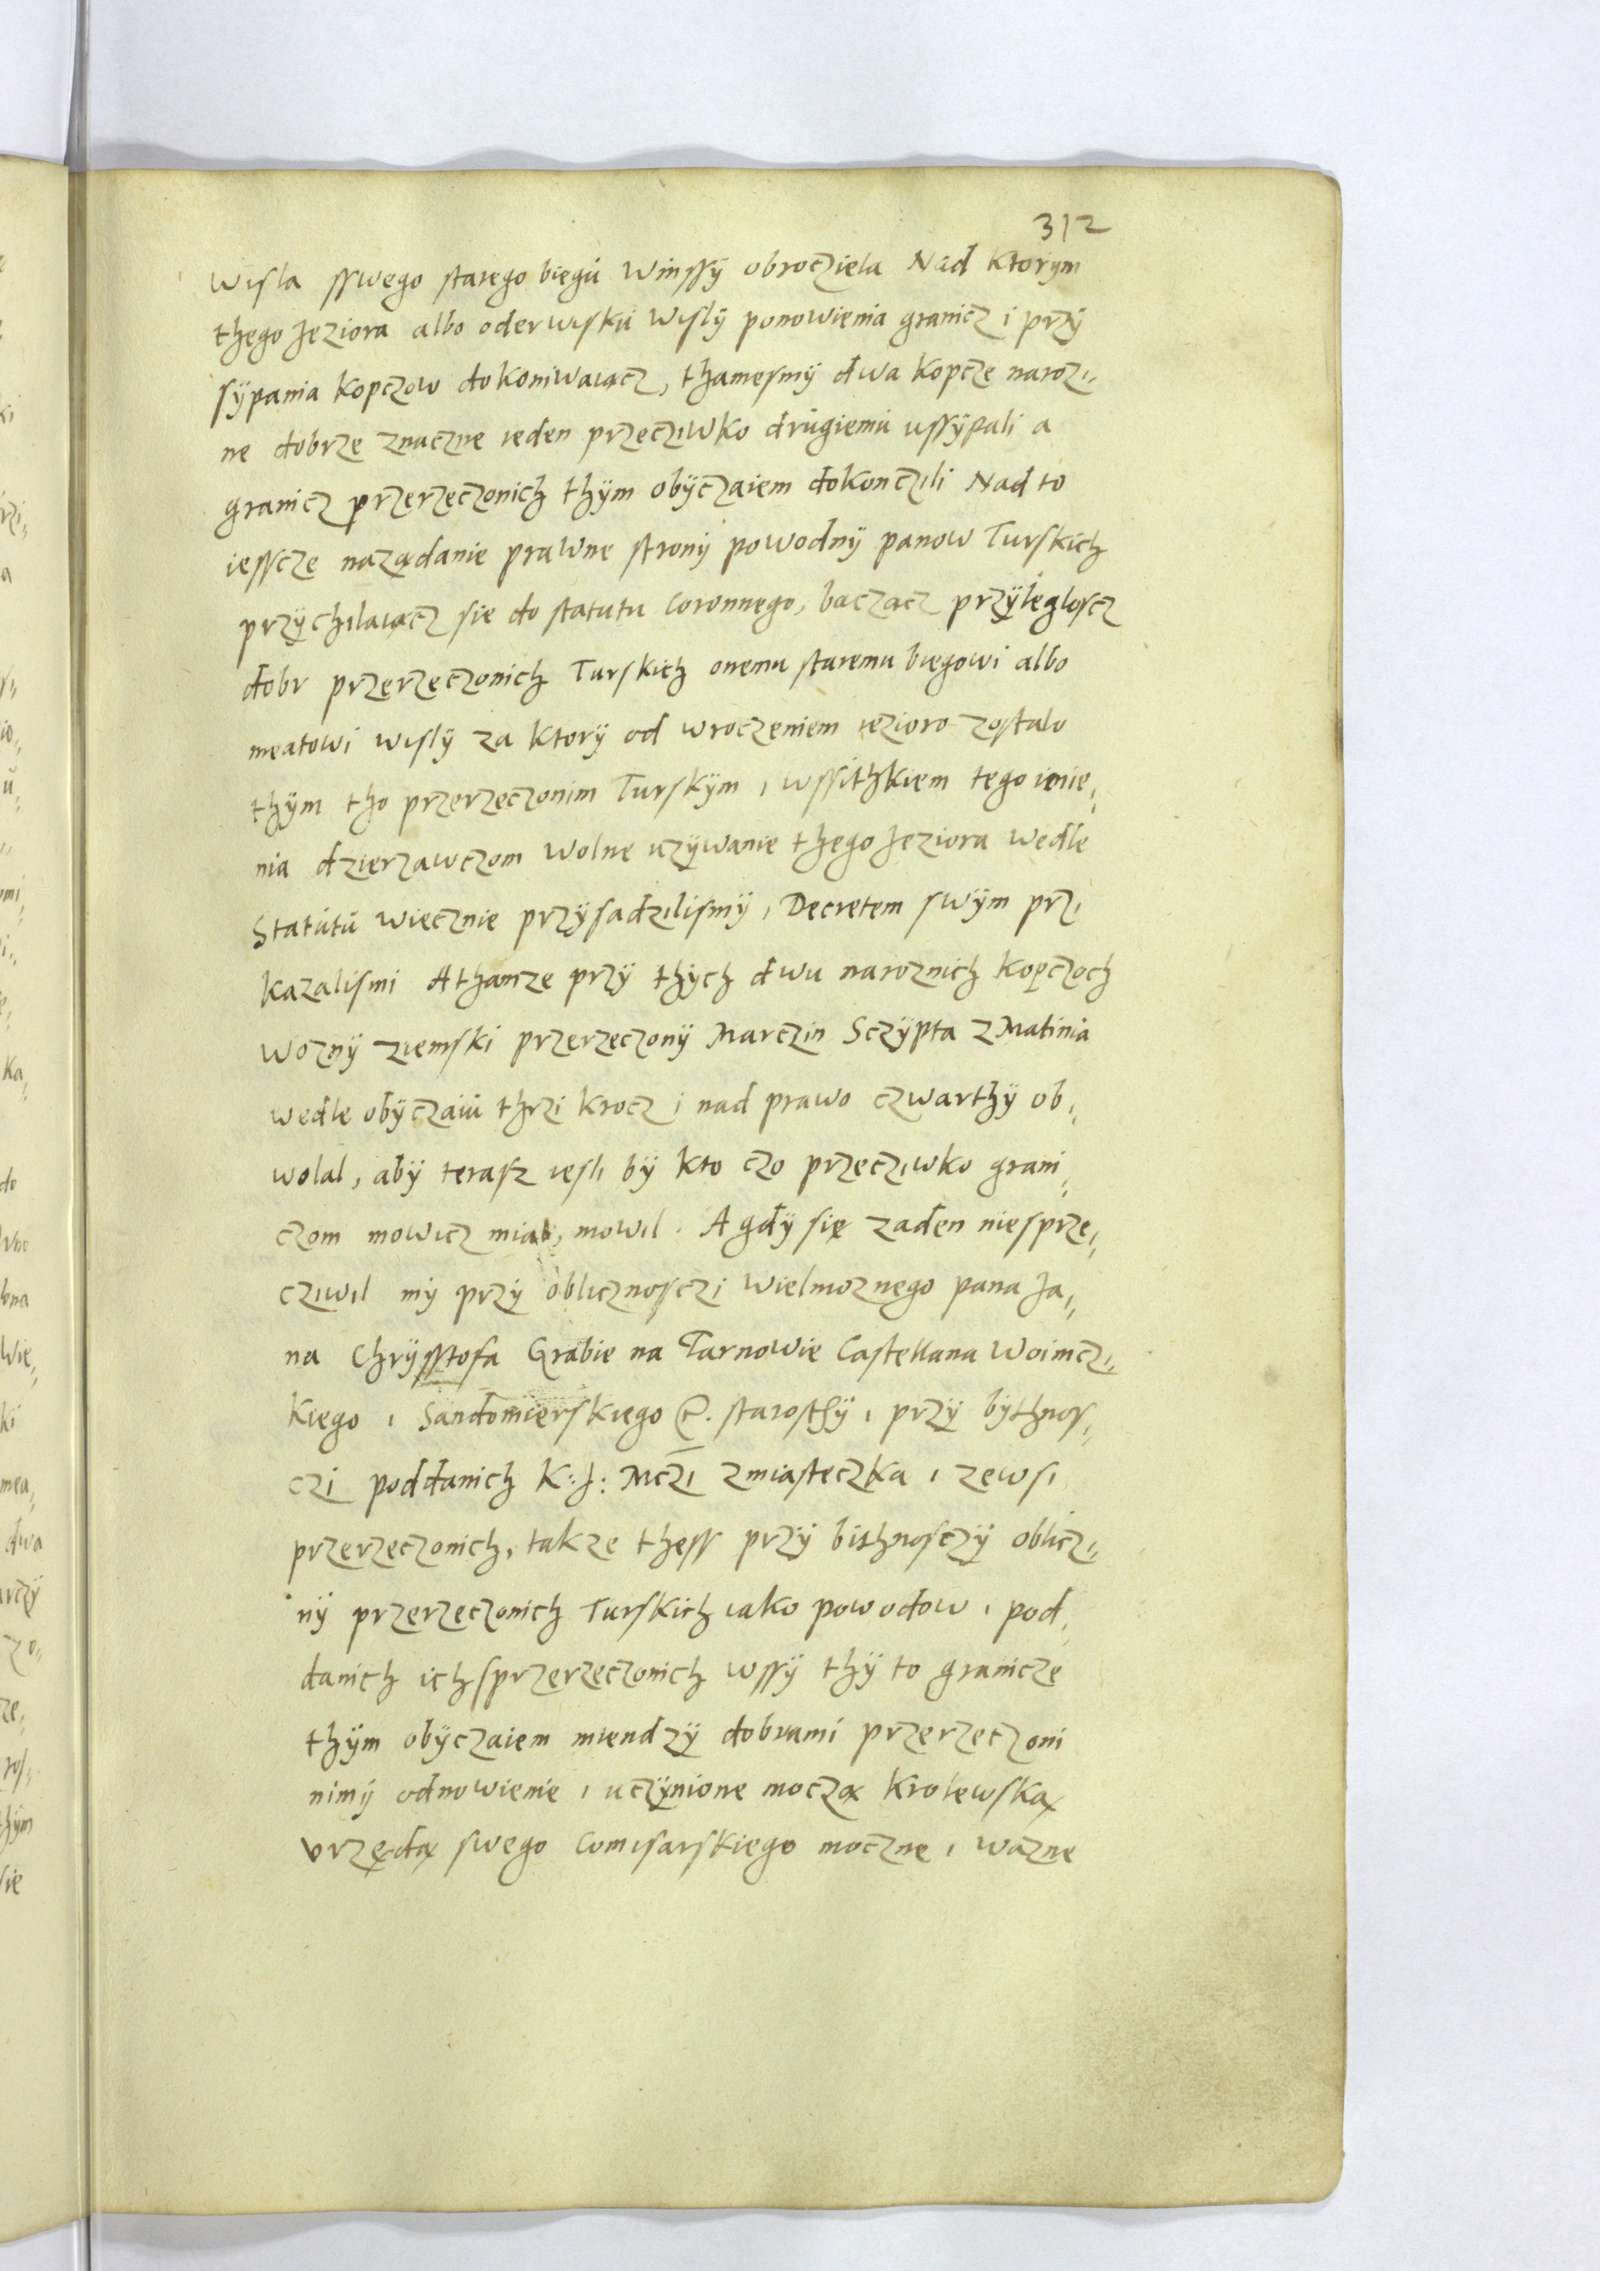 312
Wisla sswego starego biegu Winssÿ obrocziela Nad Ktorym
thego Jeziora albo oderwisku Wislÿ ponowienia granicz i przÿ
sÿpania Kopczow dokoniwaiącz, thamesmÿ dwa Kopcze narozi„
ne dobrze znaczne ieden przecziwko drugiemu ussÿpali a
granicz przerzeczonich thÿm obÿczaiem dokonczili Nad to
iesscze naządanie prawne stronÿ powodnÿ panow Turskich
przÿchilaiącz sie do statutu Coronnego, baczącz przÿległoscz
dobr przerzeczonich Turskich onemu staremu biegowi albo
meatowi wislÿ za Ktorÿ od wroczeniem iezioro zostalo
thÿm tho przerzeczonim Turskÿm i wssithkiem tego imie„
nia dzierzawczom Wolne uzÿwanie thego Jeziora wedle
Statutu wiecznie przÿsadzilismÿ, Decretem swÿm przi
kazalismi Athamze przÿ thÿch dwu naroznich Kopczoch
Woznÿ ziemski przerzeczonÿ Marczin Sczÿpta z Matinia
wedle obÿczaiu thrzi krocz i nad prawo czwarthÿ ob„
wolal, abÿ terasz iesli bÿ kto czo przecziwko grani„
czom mowicz mial, mowil. A gdÿ się zaden niesprze„
cziwil mÿ przÿ oblicznosczi Wielmoznego pana Ja„
na Chrÿsstofa Grabie na Tarnowie Castellana Woinicz„
kiego i Sandomierskiego etc. starosthÿ i przÿ bÿthnos„
czi poddanich K: J: Mczi zmiasteczka i zewsi
przerzeczonich, takze thess przÿ bithnosczÿ obliczi„
nÿ przerzeczonich Turskich iako powodow i pod„
danich ich sprzerzeczonich wssÿ thÿ to granicze
thÿm obÿczaiem miendzÿ dobrami przerzeczoni
nimÿ odnowienie i uczÿnione moczą Krolewską
vrzędą swego Comisarskiego moczne i wazne